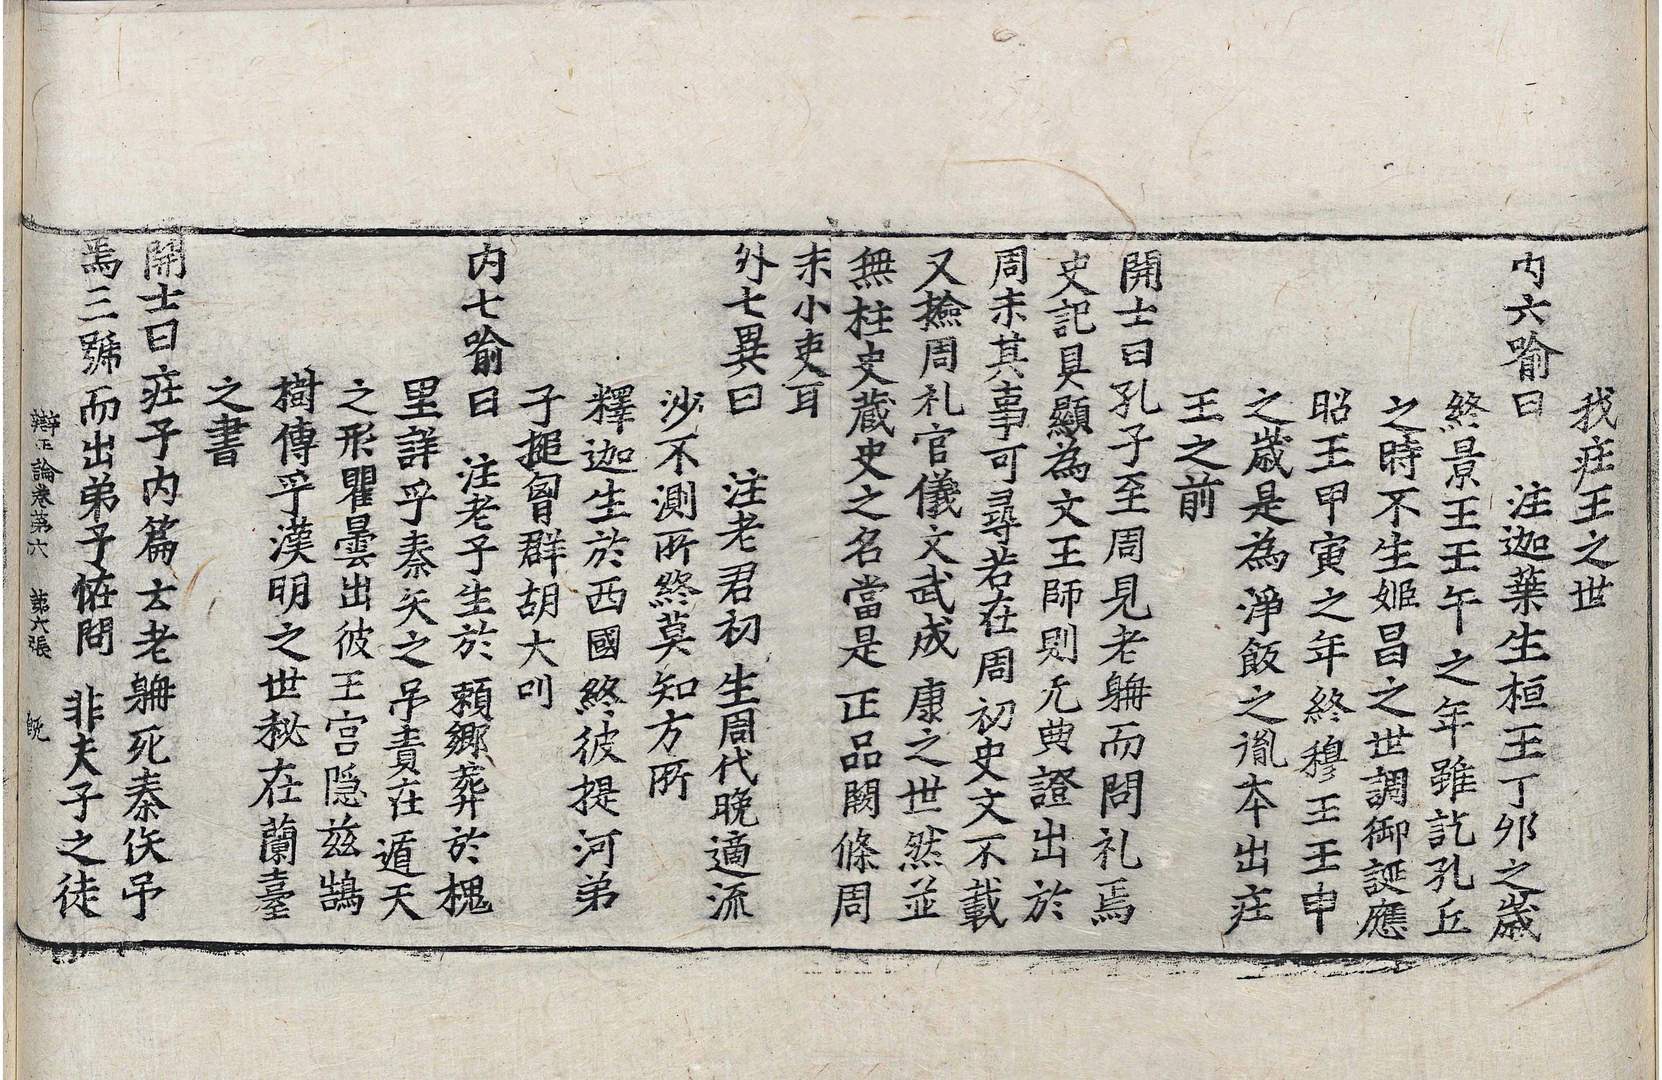 我庄王之世
内六喻曰　注迦葉生桓王丁夘之歳
終景王壬午之年雖訖孔丘
之時不生姬昌之世調御誕應
昭王甲寅之年終穆王壬申
之歳是為淨飯之胤本出庄
王之前
開士曰孔子至周見老聃而問礼焉
史記具顯為文王師則无典證出於
周末其事可尋若在周初史文不載
又撿周礼官儀文武成康之世然並
無柱史藏史之名當是正品闕條周
末小吏耳
外七異曰　注老君初生周代晚適流
沙不測所終莫知方所
釋迦生於西國終彼提河弟
子搥胷群胡大叫
内七喻曰　注老子生於賴鄉葬於槐
里詳乎秦矢之吊責在遁天
之形瞿曇出彼王宫隠兹鵠
樹傳乎漢明之世秘在蘭臺
之書
開士曰庄子内篇云老聃死秦佚吊
焉三號而出弟子恠問　非夫子之徒
辯正論卷第六　第六張　旣